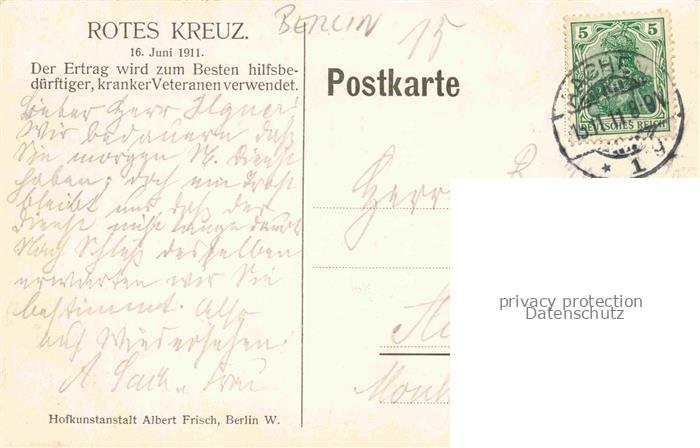 ROTES KREUZ.
16. Juni 1911.
Der Ertrag wird zum Besten hilfsbe-
dürftiger, kranker Veteranen verwendet.
BERLIN
15
Postkarte
5
DEUTSCHES REICH
Lieber Herr
Wir bedauern daß
Sie morgen N. Dienst
haben; doch ein Trost
bleibt uns daß der
Dienst nicht lange dauert
Nach Schluß desselben
erwarten wir Sie
bestimmt. Also
auf Wiedersehen!
Frau
Herrn
privacy protection
Datenschutz
Hofkunstanstalt Albert Frisch, Berlin W.